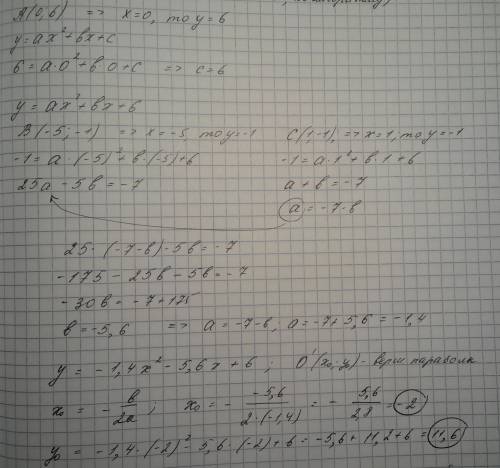 A(0,6) => x=0, то y=6
y=ax²+bx+c
6=a·0²+b·0+c => c=6
y=ax²+bx+6
B(-5;-1) => x=-5, то y=-1
-1=a·(-5)²+b·(-5)+6
25a-5b=-7
C(1;-1), => x=1, то y=-1
-1=a·1²+b·1+6
a+b=-7
a=-7-b
25·(-7-b)-5b=-7
-175-25b-5b=-7
-30b=-7+175
b=-5,6 => a=-7-b, a=-7+5,6=-1,4
y=-1,4x²-5,6x+6; O'(x₀;y₀)- верш параболы
x₀=-b/2a; x₀=- -5,6/2·(-1,4) =- 5,6/2,8 =-2
y₀=-1,4·(-2)²-5,6·(-2)+6=-5,6+11,2+6=11,6